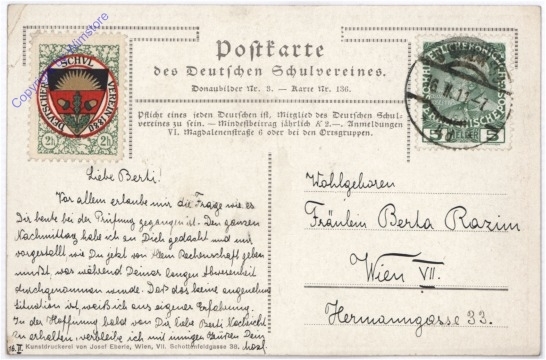 Postkarte
des Deutschen Schulvereines.
Donaubilder Nr. 3. — Karte Nr. 136.
Pflicht eines jeden Deutschen ist, Mitglied des Deutschen Schul-
vereines zu sein. — Mindestbeitrag jährlich K 2.—. Anmeldungen
VI. Magdalenenstraße 6 oder bei den Ortsgruppen.
DEUTSCHER SCHVL VEREIN 1880
2h 2h
5 HELLER 5
Liebe Berti!
Vor allem erlaube mir die Frage wie es
Dir heute bei der Prüfung gegangen ist. Den ganzen
Nachmittag habe ich an Dich gedacht und mir
vorgestellt wie Du jetzt von Rechenschaft geben
mußt, was während Deiner langen
durchgenommen wurde. Daß das keine angenehme
Situation ist, weiß ich aus eigener Erfahrung.
In der Hoffnung bald von Dir, liebe Berti Nachricht
zu erhalten, verbleibe ich mit Dein
Wohlgeboren
Fräulein Berta Razim
Wien VII.
Hermanngasse 33.
Kunstdruckerei von Josef Eberle, Wien, VII. Schottenfeldgasse 38.